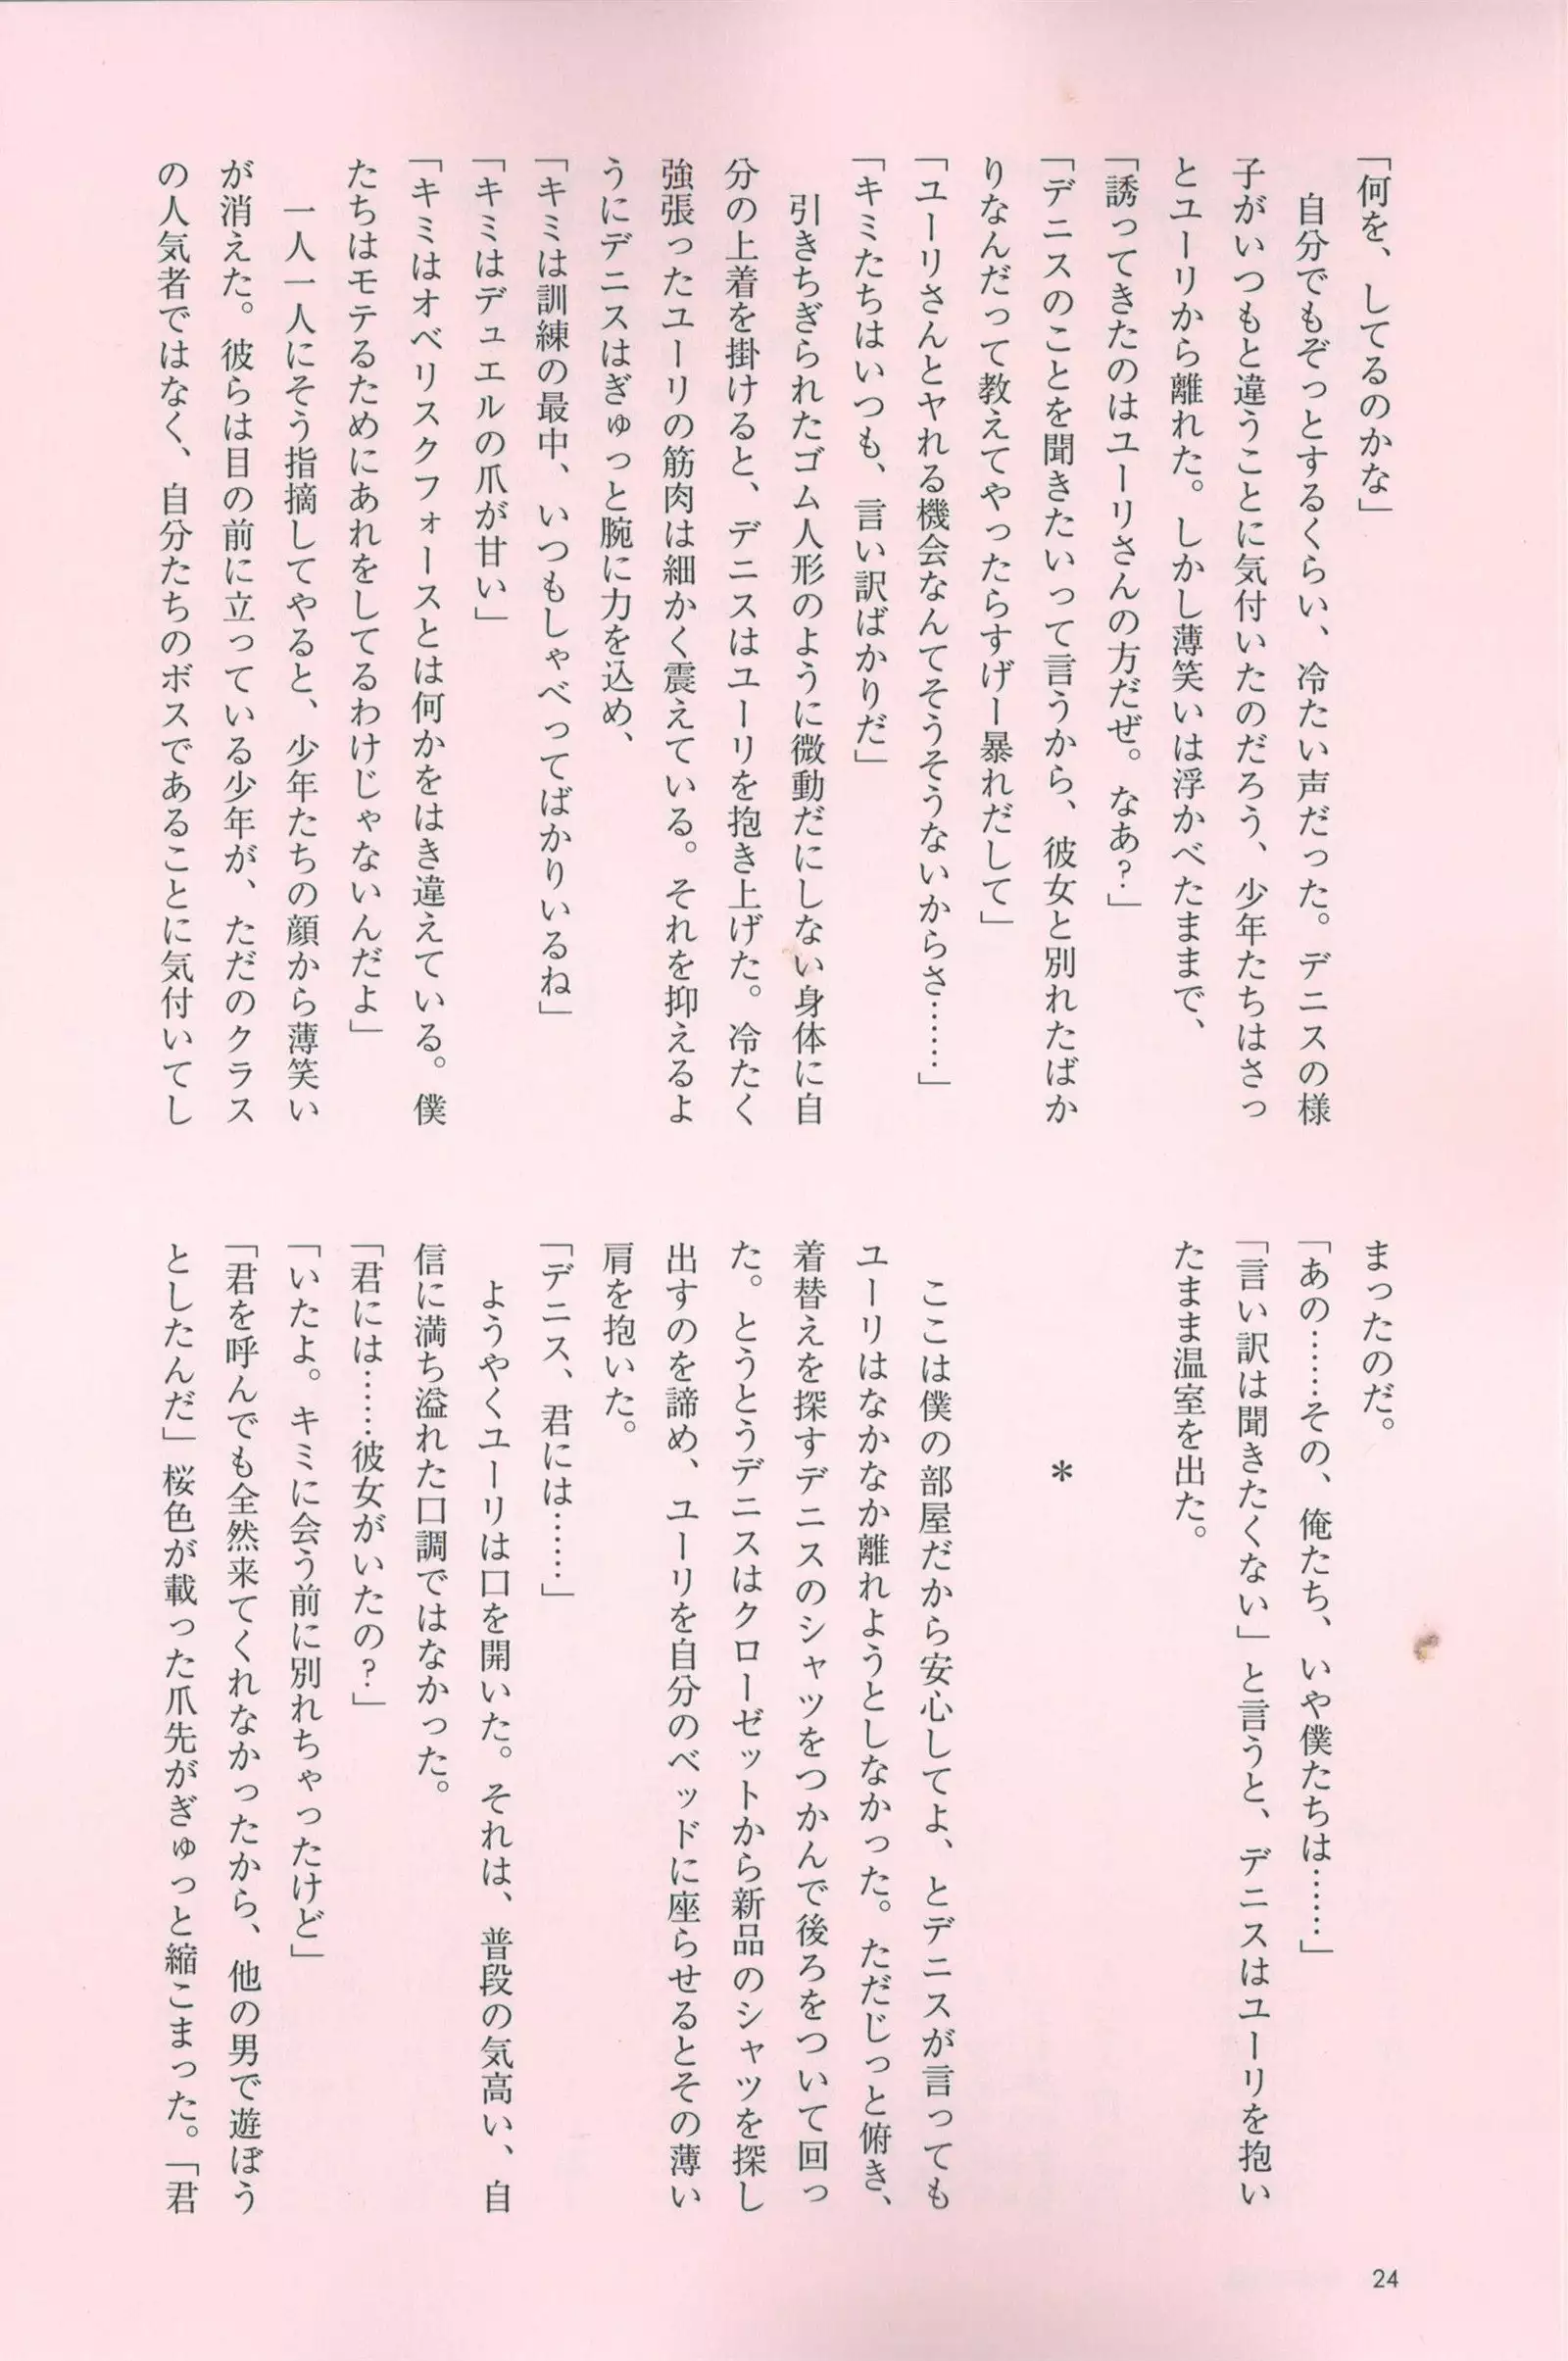 「何を、してるのかな」
　自分でもぞっとするくらい、冷たい声だった。デニスの様
子がいつもと違うことに気付いたのだろう、少年たちはさっ
とユーリから離れた。しかし薄笑いは浮かべたままで、
「誘ってきたのはユーリさんの方だぜ。なあ？」
「デニスのことを聞きたいって言うから、彼女と別れたばか
りなんだって教えてやったらすげー暴れだして」
「ユーリさんとヤれる機会なんてそうそうないからさ……」
「キミたちはいつも、言い訳ばかりだ」
　引きちぎられたゴム人形のように微動だにしない身体に自
分の上着を掛けると、デニスはユーリを抱き上げた。冷たく
強張ったユーリの筋肉は細かく震えている。それを抑えるよ
うにデニスはぎゅっと腕に力を込め、
「キミは訓練の最中、いつもしゃべってばかりいるね」
「キミはデュエルの爪が甘い」
「キミはオベリスクフォースとは何かをはき違えている。僕
たちはモテるためにあれをしてるわけじゃないんだよ」
　一人一人にそう指摘してやると、少年たちの顔から薄笑い
が消えた。彼らは目の前に立っている少年が、ただのクラス
の人気者ではなく、自分たちのボスであることに気付いてし
まったのだ。
「あの……その、俺たち、いや僕たちは……」
「言い訳は聞きたくない」と言うと、デニスはユーリを抱い
たまま温室を出た。
＊
　ここは僕の部屋だから安心してよ、とデニスが言っても
ユーリはなかなか離れようとしなかった。ただじっと俯き、
着替えを探すデニスのシャツをつかんで後ろをついて回っ
た。とうとうデニスはクローゼットから新品のシャツを探し
出すのを諦め、ユーリを自分のベッドに座らせるとその薄い
肩を抱いた。
「デニス、君には……」
　ようやくユーリは口を開いた。それは、普段の気高い、自
信に満ち溢れた口調ではなかった。
「君には……彼女がいたの？」
「いたよ。キミに会う前に別れちゃったけど」
「君を呼んでも全然来てくれなかったから、他の男で遊ぼう
としたんだ」桜色が載った爪先がぎゅっと縮こまった。「君
24